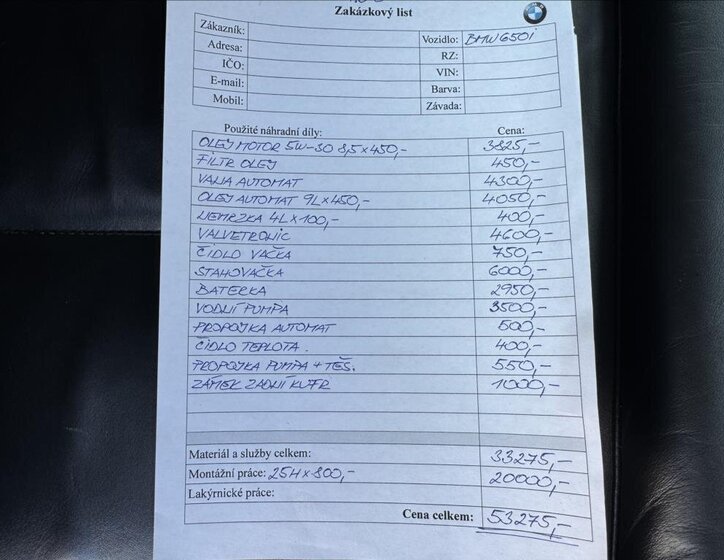 Zakázkový list
Zákazník: Vozidlo: BMW 650i
Adresa: RZ:
IČO: VIN:
E-mail: Barva:
Mobil: Závada:
Použité náhradní díly: Cena:
OLEJ MOTOR 5W-30 8,5x450,- 3825,-
FILTR OLEJ 450,-
VANA AUTOMAT 4300,-
OLEJ AUTOMAT 9L x 450,- 4050,-
NEMRZKA 4L x 100,- 400,-
VALVETRONIC 4600,-
ČIDLO VAČKA 750,-
STAHOVAČKA 6000,-
BATERKA 2950,-
VODNÍ PUMPA 3500,-
PROPOJKA AUTOMAT 500,-
ČIDLO TEPLOTA. 400,-
PROPOJKA PUMPA + TĚS. 550,-
ZÁMEK ZADNÍ KUFR 1000,-
Materiál a služby celkem: 33275,-
Montážní práce: 25H x 800,- 20000,-
Lakýrnické práce:
Cena celkem: 53275,-